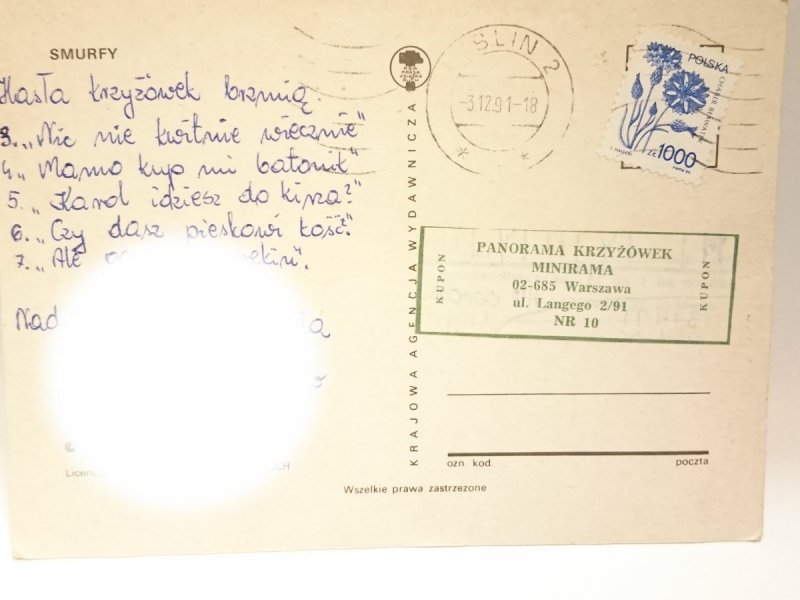 SMURFY
Hasła krzyżówek brzmią.
3. „Nic nie kwitnie wiecznie”
4. „Mamo kup mi batonik”
5. „Karol idziesz do kina?”
6. „Czy dasz pieskowi kość?”
7. „Ale
Nad
©
Wszelkie prawa zastrzeżone
KRAJOWA AGENCJA WYDAWNICZA
SLIN 2
-3.12.91-18
POLSKA
CHABER BŁAWATEK
ZŁ 1000
KUPON
PANORAMA KRZYŻÓWEK
MINIRAMA
02-685 Warszawa
ul. Langego 2/91
NR 10
KUPON
ozn. kod. poczta